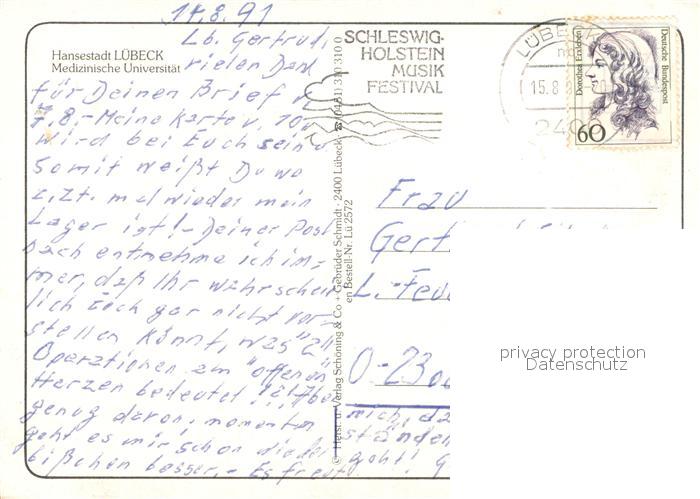 14.8.91
Hansestadt LÜBECK
Medizinische Universität
Lb. Gertrud,
vielen Dank
für Deinen Brief v.
7.8.- Meine Karte v. 10.
wird bei Euch sein u
somit weißt Du wo
z.Zt. mal wieder mein
Lager ist!- Deiner Post
nach entnehme ich im=
mer, daß Ihr wahrschein
lich Euch gar nicht vor=
stellen könnt, was
Operationen am "offenen"
Herzen bedeutet!
genug davon, momentan
geht es mir schon wieder
bißchen besser.- Es freut
mich, da
ständen
geht!
SCHLESWIG-
HOLSTEIN
MUSIK
FESTIVAL
LÜBECK
15.8.9
2400
Dorothea Erxleben
Deutsche Bundespost
60
© Herst. u. Verlag Schöning & Co + Gebrüder Schmidt · 2400 Lübeck · ☎ (0451) 310 3100
en Bestell-Nr. Lü 2572
Frau
Gert
L.-Feu
O-230
privacy protection
Datenschutz